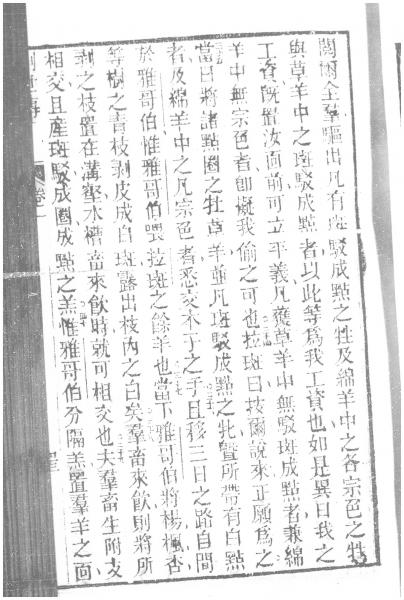 閱爾全羣驅出凡有斑駁成點之牲及綿羊中之各宗色之牲
與草羊中之斑駁成點者以此等爲我工資也如是異日我之
工資既置汝面前可立平義凡獲草羊中無駁斑成點者兼綿
羊中無宗色者卽擬我偷之可也拉班曰按爾說來正願爲之
當日將諸點圈之牡草羊並凡斑駁成點之牝曁所帶有白點
者及綿羊中之凡宗色者悉交本丁之手且移三日之路自間
於雅哥伯惟雅哥伯喂拉班之餘羊也當下雅哥伯將楊楓杏
等樹之青枝剥皮成白斑露出枝內之白矣羣畜來飲則將所
剥之枝置在溝壑水槽畜來飲時就可相交也夫羣畜生附支
相交且產斑駁成圈成點之羔惟雅哥伯分隔羔置羣羊之面
卷一